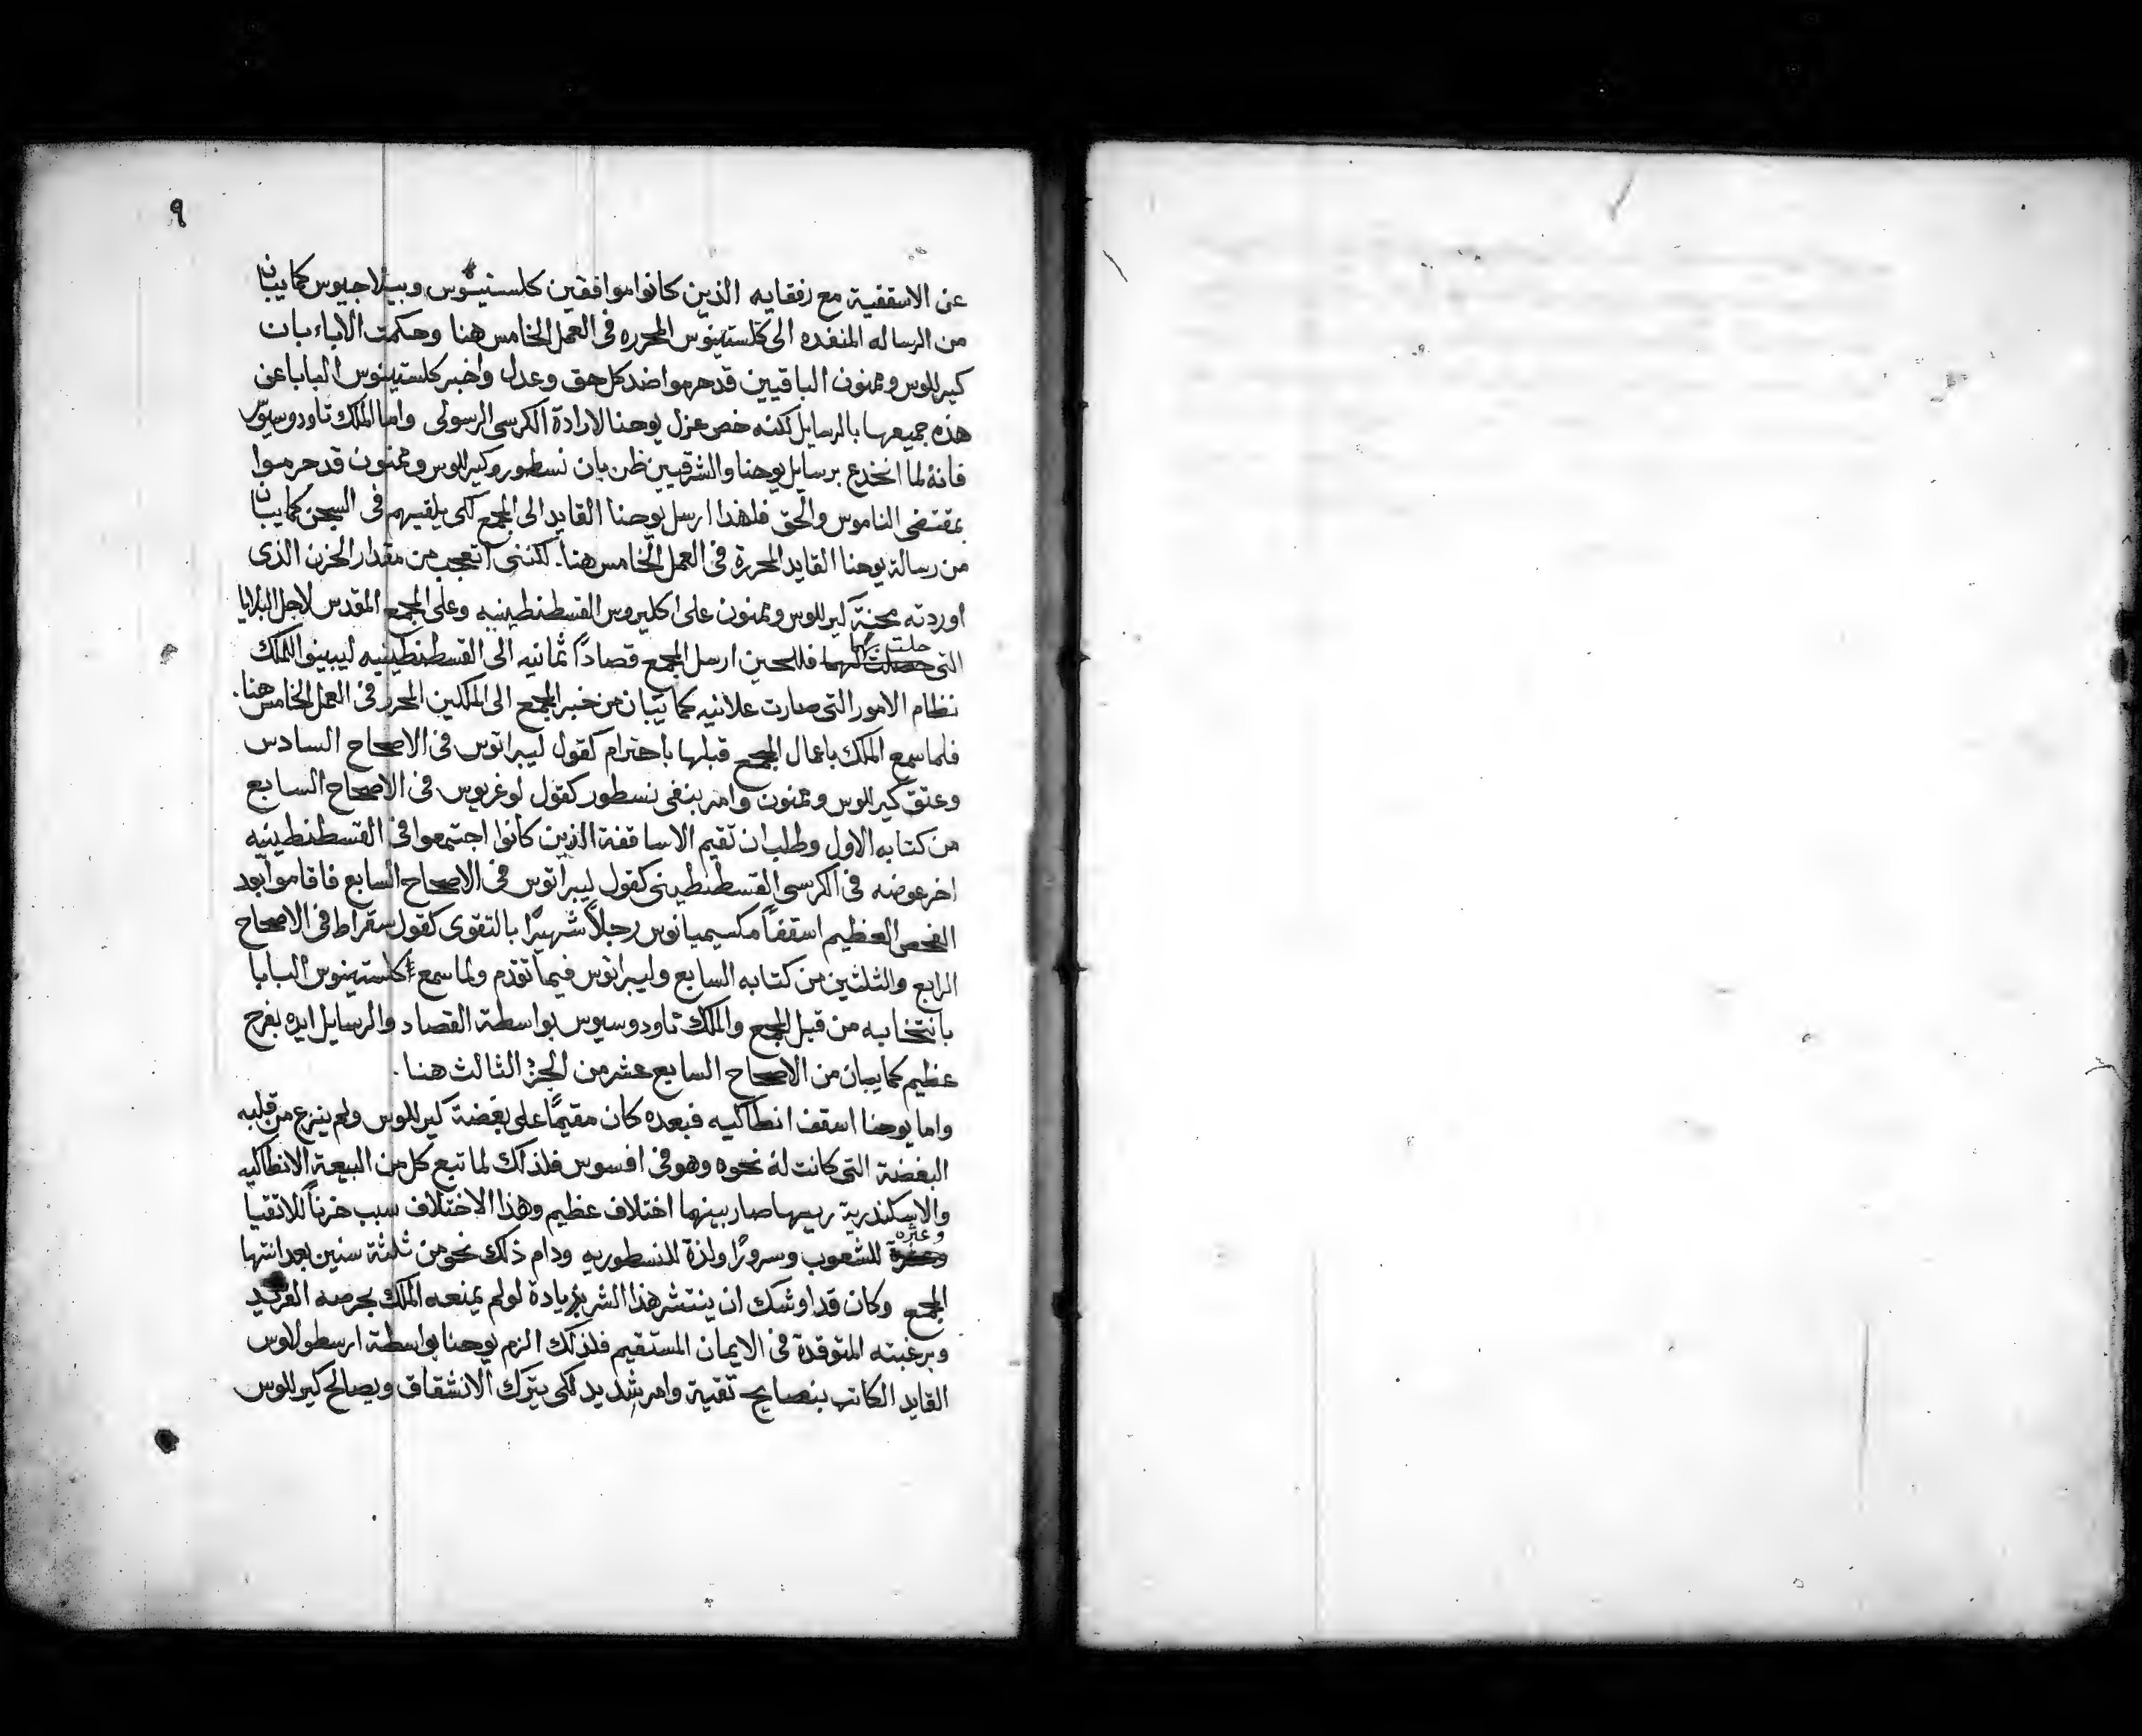 ٩
عن الاسقفية مع رفقايه الذين كانوا موافقين كلستيوس وبيلاجيوس كما يبان
من الرساله المنفده الى كلستينوس المحرره فى العمل الخامس هنا وحكمت الاباء بان
كيرللوس وممنون الباقيين قد حرموا ضد كل حق وعدل واخبر كلستينوس البابا عن
هذه جميعها بالرسايل لكنه خص عزل يوحنا لارادة الكرسى الرسولى واما الملك تاودوسيوس
فانهُ لما انخدع برسايل يوحنا والشرقيين ظن بان نسطور وكيرللوس وممنون قد حرموا
بمقتضى الناموس والحق فلهذا ارسل يوحنا القايد الى المجمع لكى يلقيهم فى السجن كما يبان
من رسالة يوحنا القايد المحررة فى العمل الخامس هنا. لكننى اتعجب من مقدار الحزن الذى
اوردته محنة كيرللوس وممنون على اكليروس القسطنطينيه وعلى المجمع المقدس لاجل البلايا
حلت بهما
التى حصلت لهما فللحين ارسل المجمع قصادًا ثمانيه الى القسطنطينيه ليبينوا للملك
نظام الامور التى صارت علانيه كما يتبان من خبر المجمع الى الملكين المحرر فى العمل الخامس هنا.
فلما سمع الملك باعمال المجمع قبلها باحترام كقول ليبراتوس فى الاصحاح السادس
وعتق كيرللوس وممنون وامر بنفى نسطور كقول اوغريوس فى الاصحاح السابع
من كتابه الاول وطلب ان تقيم الاساقفة الذين كانوا اجتمعوا فى القسطنطينيه
اخر عوضه فى الكرسى القسطنطينى كقول ليبراتوس فى الاصحاح السابع فاقاموا بعد
الفحص العظيم اسقفاً مكسيميانوس رجلاً شهيرًا بالتقوى كقول سقراط فى الاصحاح
الرابع والثلثين من كتابه السابع وليبراتوس فيما تقدم ولما سمع كلستينوس البابا
بانتخابه من قبل المجمع والملك تاودوسيوس بواسطة القصاد والرسايل ايده بفرح
عظيم كما يبان من الاصحاح السابع عشر من الجزء الثالث هنا.
واما يوحنا اسقف انطاكيه فبعده كان مقيمًا على بغضة كيرللوس ولم ينزع من قلبه
البغضة التى كانت لهُ نحوه وهو فى افسوس فلذلك لما تبع كل من البيعة الانطاكيه
والاسكندرية ريسها صار بينهما اختلاف عظيم وهذا الاختلاف سبب حزناً للاتقيا
وعثره
وعثرة للشعوب وسرورًا ولذة للنسطوريه ودام ذلك نحو من ثلثة سنين بعد انتها
المجمع وكان قد اوشك ان ينتشر هذا الشر بزيادة لو لم يمنعه الملك بحرصه الفريد
وبرغبته المتوقدة فى الايمان المستقيم فلذلك الزم يوحنا بواسطة ارسطولاوس
القايد الكاتب بنصايح تقية وامر شديد لكى يترك الانشقاق ويصالح كيرللوس